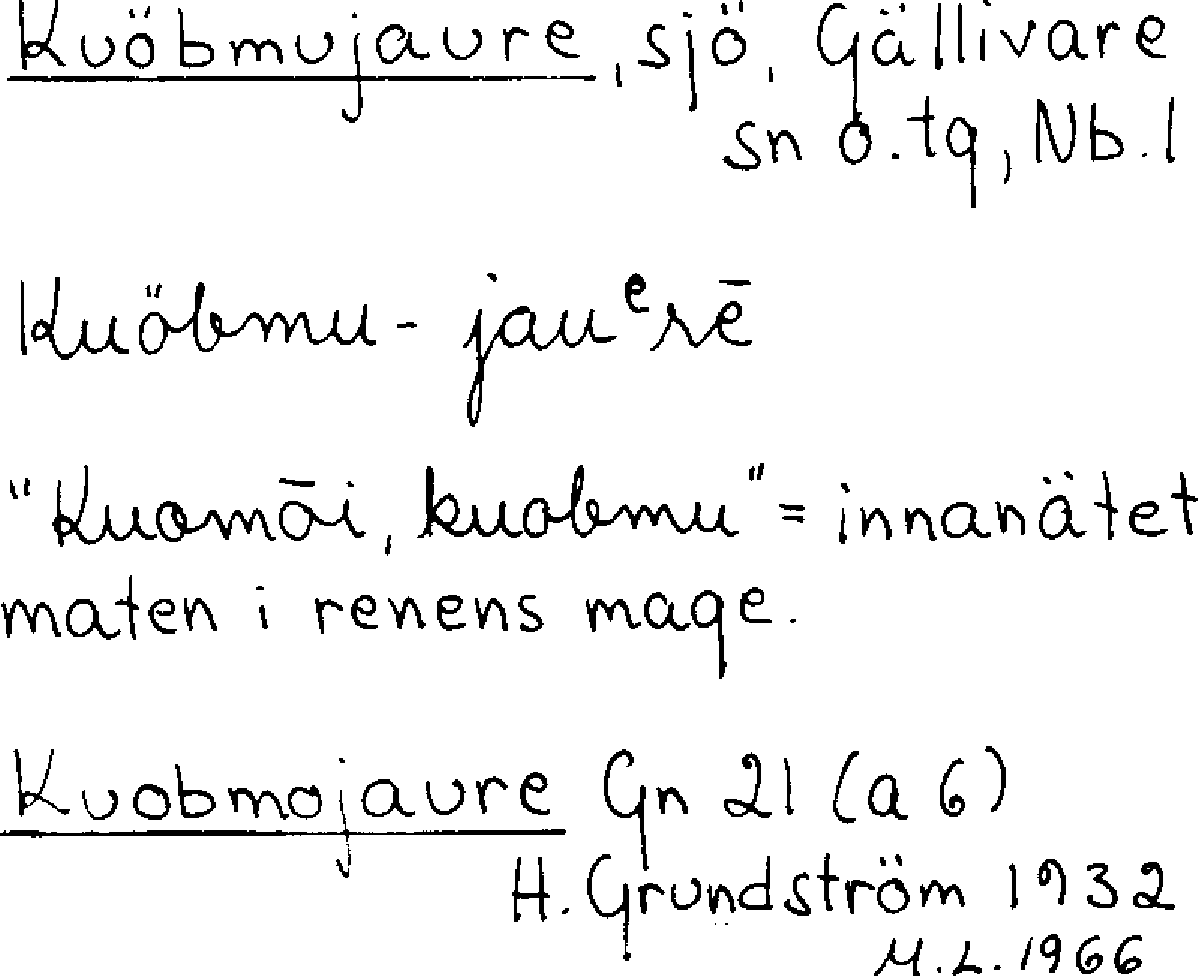 Kuöbmujaure, sjö, Gällivare
sn o.tg, Nb.l
Kuöbmu-jauᵉrē
"Kuomōi, kuobmu" = innanätet
maten i renens mage.
Kuobmojaure Gn 21 (a 6)
H. Grundström 1932
M.L. 1966